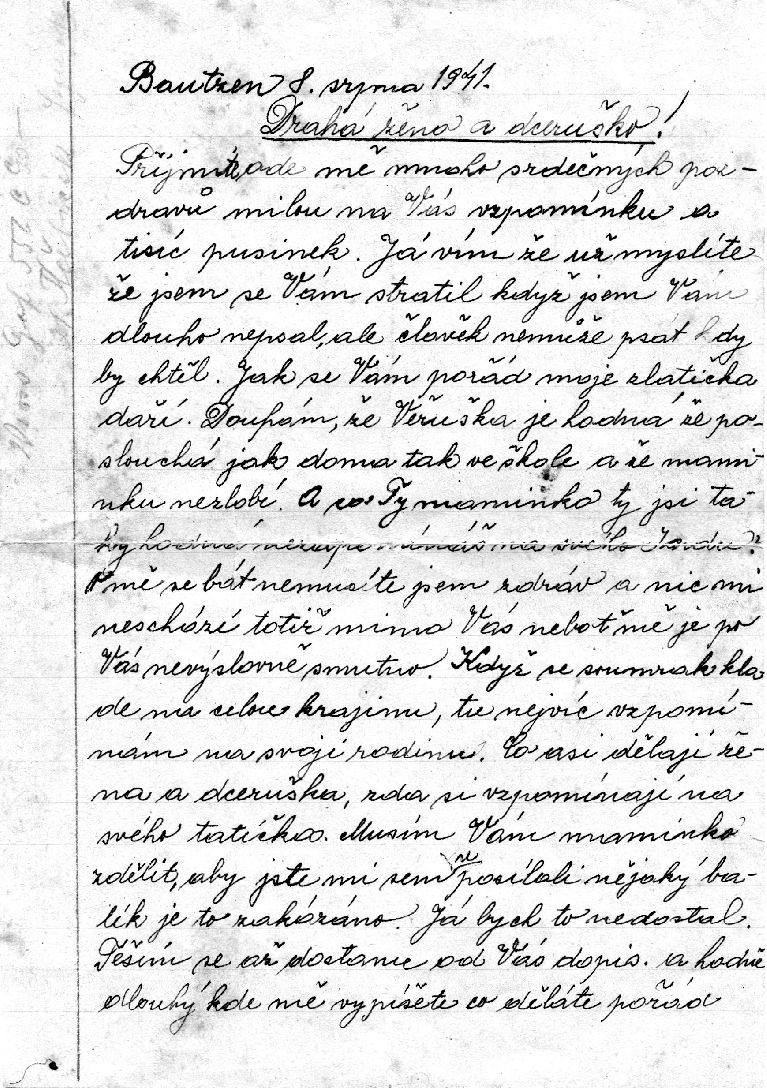 Bautzen 8. srpna 1941.
Drahá žena a dceruško!
Příjmite ode mě mnoho srdečných poz-
dravů milou na Vás vzpomínku a
tisíc pusinek. Já vím že už myslíte
že jsem se Vám stratil když jsem Vám
dlouho nepsal, ale člověk nemůže psát kdy
by chtěl. Jak se Vám pořád moje zlatíčka
daří. Doufám, že Věruška je hodná že po-
slouchá jak doma tak ve škole a že mami-
nku nezlobí. A co Ty maminko ty jsi ta-
ky hodná nezapomínáš na svého
O mě se bát nemusíte jsem zdráv a nic mi
neschází totiž mimo Vás neboť mě je po
Vás nevýslovně smutno. Když se soumrak kla
de na celou krajinu, tu nejvíc vzpomí-
nám na svoji rodinu. Co asi dělají že-
na a dceruška, zda si vzpomínají na
svého tatíčka. Musím Vám maminko
zdělit, aby jste mi sem ne posílali nějaký ba-
lík je to zakázáno. Já bych to nedostal.
Těším se až dostanu od Vás dopis. a hodně
dlouhý kde mě vypíšete co děláte pořád